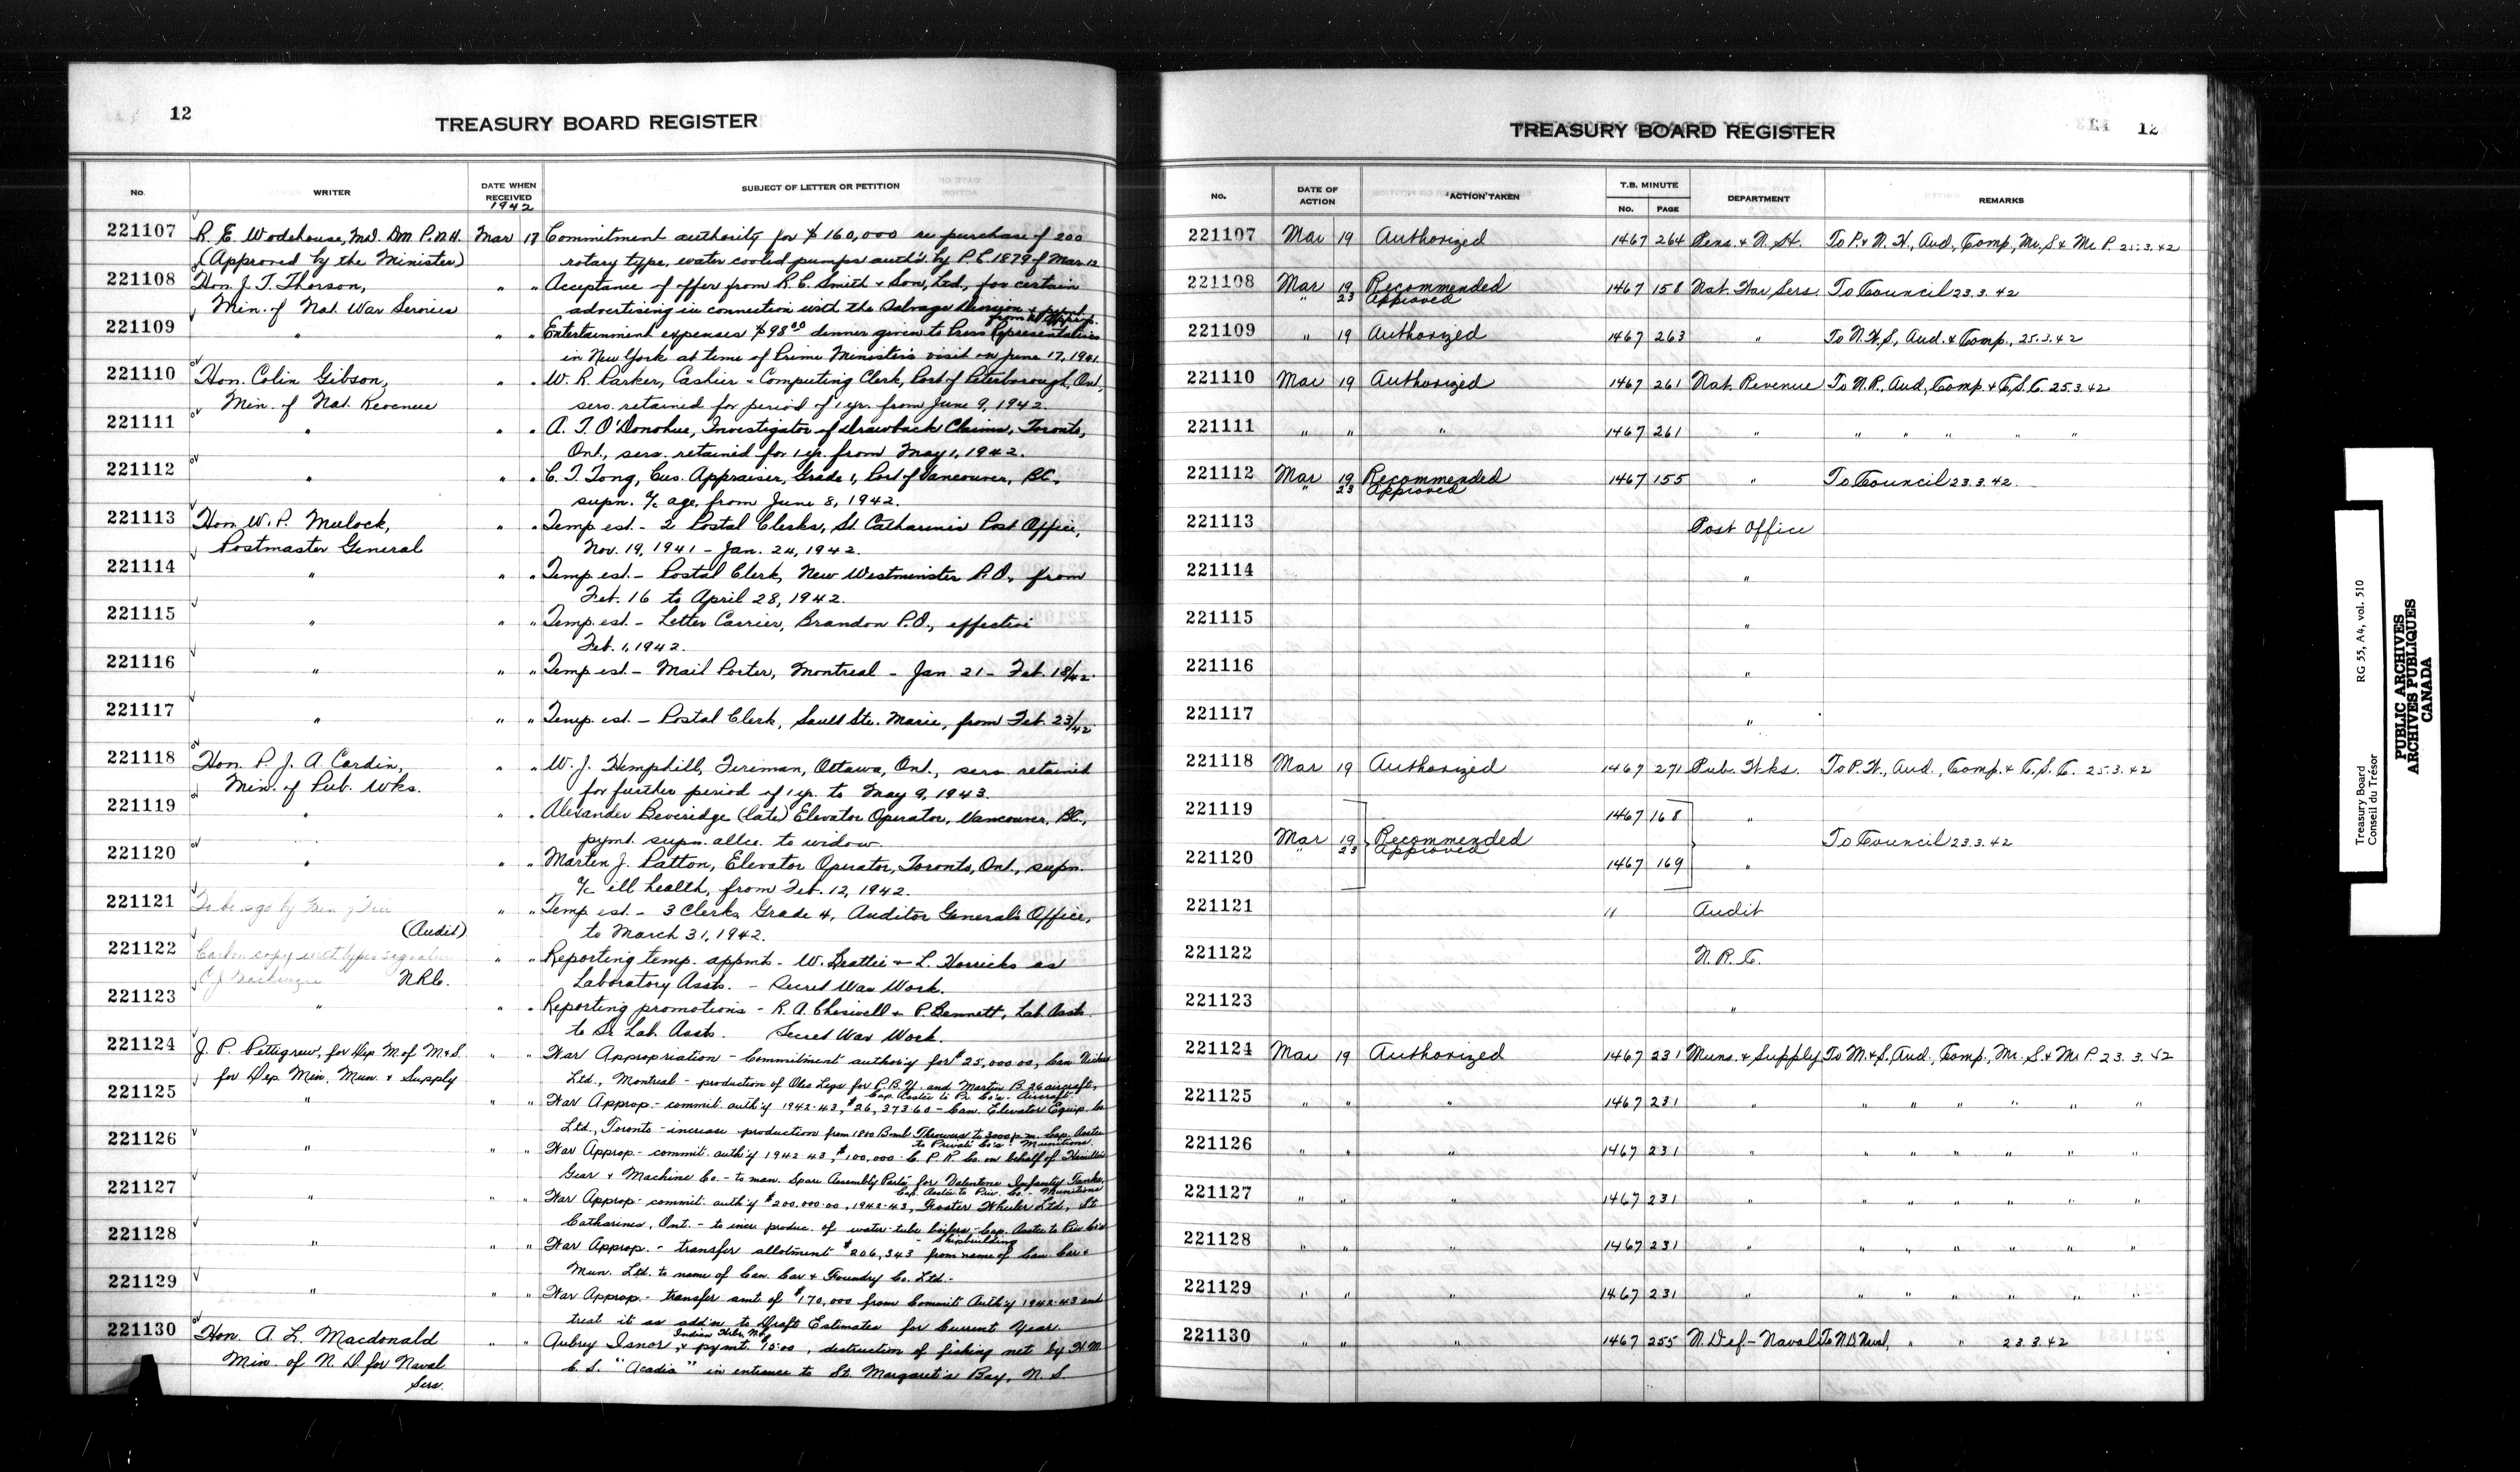 12
TREASURY BOARD REGISTER
No. WRITER DATE WHEN RECEIVED 1942 SUBJECT OF LETTER OR PETITION
221107 R. E. Wodehouse, M.D. D.M. P.N.H. Mar 17 Commitment authority for $160,000 re purchase of 200
(Approved by the Minister) rotary type, water cooled pumps auth'd. by P.C. 1879 of Mar. 12
221108 Hon. J. T. Thorson, " " Acceptance of offer from R. C. Smith & Son, Ltd., for certain
Min. of Nat. War Services advertising in connection with the Salvage Division & pymt.
from W. Approp.
221109 " " " Entertainment expenses $98.00 dinner given to Press Representatives
in New York at time of Prime Minister's visit on June 17, 1941.
221110 Hon. Colin Gibson, " " W. R. Parker, Cashier & Computing Clerk, Port of Peterborough, Ont.,
Min. of Nat. Revenue serv. retained for period of 1 yr. from June 9, 1942.
221111 " " " A. T. O'Donohue, Investigator of Drawback Claims, Toronto,
Ont., serv. retained for 1 yr. from May 1, 1942.
221112 " " " C. T. Tong, Cus. Appraiser, Grade 1, Port of Vancouver, B.C.,
supn. a/c age, from June 8, 1942.
221113 Hon. W. P. Mulock, " " Temp. est. - 2 Postal Clerks, St. Catharines Post Office,
Postmaster General Nov. 19, 1941 - Jan. 24, 1942.
221114 " " " Temp. est. - Postal Clerk, New Westminster P.O., from
Feb. 16 to April 28, 1942.
221115 " " " Temp. est. - Letter Carrier, Brandon P.O., effective
Feb. 1, 1942.
221116 " " " Temp. est. - Mail Porter, Montreal - Jan. 21 - Feb. 18/42.
221117 " " " Temp. est. - Postal Clerk, Sault Ste. Marie, from Feb. 23/42.
221118 Hon. P. J. A. Cardin, " " W. J. Hemphill, Fireman, Ottawa, Ont., serv. retained
Min. of Pub. Wks. for further period of 1 yr. to May 9, 1943.
221119 " " " Alexander Beveridge (late) Elevator Operator, Vancouver, B.C.,
pymt. supn. allce. to widow.
221120 " " " Martin J. Patton, Elevator Operator, Toronto, Ont., supn.
a/c ill health, from Feb. 12, 1942.
221121 To be sgd by Min of Fin " " Temp. est. - 3 Clerks, Grade 4, Auditor General's Office,
(Audit) to March 31, 1942.
221122 Carbon copy with typed signature " " Reporting temp. appmt. - W. Beattie & L. Horricks as
C J Mackenzie N.R.C. Laboratory Assts. - Secret War Work.
221123 " " " Reporting promotions - R. A. Cheswell & P. Bennett, Lab. Assts.
to Sr. Lab. Assts. Secret War Work.
221124 J. P. Pettigrew, for Dep. M. of M. & S. " " War Appropriation - Commitment authority for $25,000.00, Can. Vickers
for Dep. Min. Mun. & Supply Ltd., Montreal - production of Oleo Legs for P.B.Y. and Martin B. 26 aircraft,
Cap. Asstce to Pr. Co's - Aircraft.
221125 " " " War Approp. - commit. auth'y 1942-43, $26,373.60 - Can. Elevator Equip. Co.
Ltd., Toronto - increase production from 1800 Bomb Throwers to 3000 p.m. Cap. Asstce
to Private Co's - Munitions.
221126 " " " War Approp. - commit. auth'y 1942-43, $100,000. C. P. R. Co. on behalf of Hamilton
Gear & Machine Co. - to man. Spare Assembly Parts for Valentine Infantry Tanks.
Cap. Asstce to Priv. Co. - Munitions
221127 " " " War Approp - commit. auth'y $200,000.00, 1942-43, Foster Wheeler Ltd., St.
Catharines, Ont. - to incr. produc. of water-tube boilers - Cap. Asstce to Priv. Co's
- Shipbuilding
221128 " " " War Approp. - transfer allotment $206,343 from name of Can. Car &
Mun. Ltd. to name of Can. Car & Foundry Co. Ltd. -
221129 " " " War Approp. - transfer amt. of $170,000 from Commit. Auth'y 1942-43 and
treat it as add'n to Draft Estimates for Current Year.
221130 Hon. A. L. Macdonald " " Aubrey Isnor, Indian Hrbr, N.S., pymt. 15.00, destruction of fishing net by H.M.
Min. of N. D. for Naval C. S. "Acadia" in entrance to St. Margaret's Bay, N. S.
Serv.
TREASURY BOARD REGISTER
12
No. DATE OF ACTION ACTION TAKEN T.B. MINUTE No. PAGE DEPARTMENT REMARKS
221107 Mar 19 Authorized 1467 264 Pens. & N. H. To P. & N. H., Aud., Comp., Mr. S. & Mr. P. 25.3.42
221108 Mar 19 Recommended 1467 158 Nat. War Serv. To Council 23.3.42
" 23 Approved
221109 " 19 Authorized 1467 263 " To N.W.S., Aud. & Comp., 25.3.42
221110 Mar 19 Authorized 1467 261 Nat. Revenue To N.R., Aud., Comp. & C.S.C. 25.3.42
221111 " " " 1467 261 " " " " " "
221112 Mar 19 Recommended 1467 155 " To Council 23.3.42.
" 23 Approved
221113 Post Office
221114 "
221115 "
221116 "
221117 "
221118 Mar 19 Authorized 1467 271 Pub. Wks. To P.W., Aud., Comp. & C.S.C. 25.3.42
221119 1467 168 "
Mar 19 Recommended To Council 23.3.42
" 23 Approved
221120 1467 169 "
221121 " Audit
221122 N. R. C.
221123 "
221124 Mar 19 Authorized 1467 231 Muns. & Supply To M.&S., Aud., Comp., Mr. S. & Mr. P. 23.3.42
221125 " " " 1467 231 " " " " " " "
221126 " " " 1467 231 " " " " " " "
221127 " " " 1467 231 " " " " " " "
221128 " " " 1467 231 " " " " " " "
221129 " " " 1467 231 " " " " " " "
221130 " " " 1467 255 N. Def - Naval To N.D. Naval, " " 23.3.42
Treasury Board RG 55, A4, vol. 510
Conseil du Trésor
PUBLIC ARCHIVES
ARCHIVES PUBLIQUES
CANADA